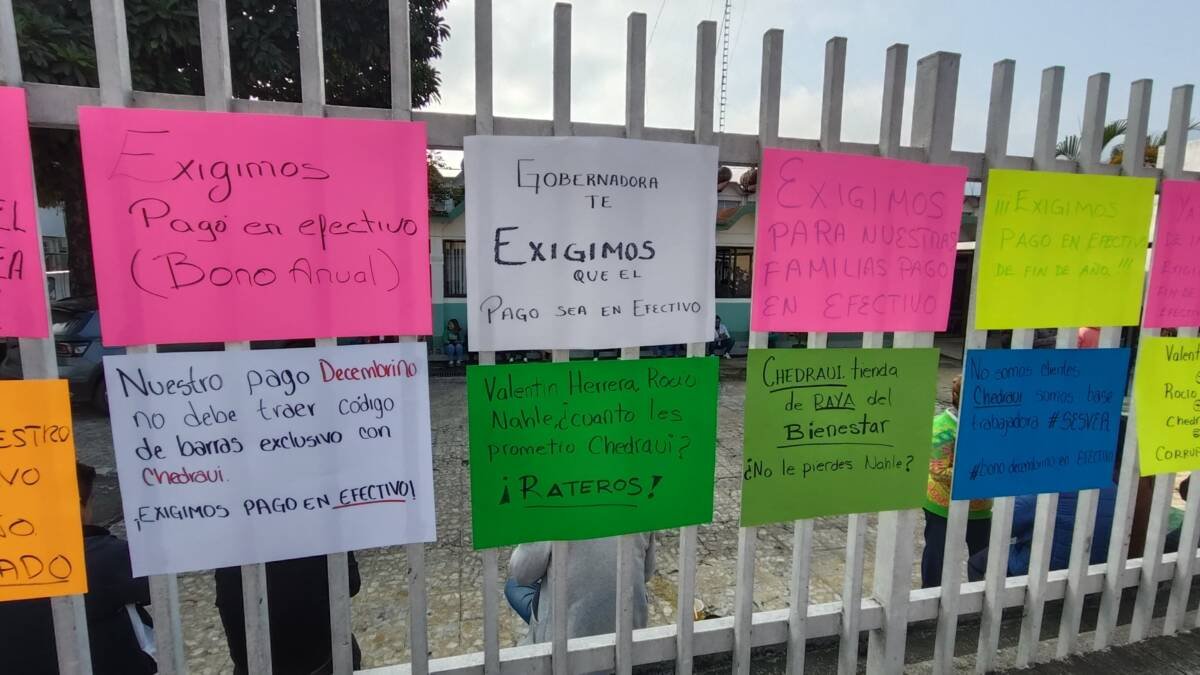 EL
EA
Exigimos
Pago en efectivo
(Bono Anual)
GOBERNADORA
TE
EXIGIMOS
QUE EL
PAGO SEA EN EFECTIVO
EXIGIMOS
PARA NUESTRAS
FAMILIAS PAGO
EN EFECTIVO
¡¡¡EXIGIMOS
PAGO EN EFECTIVO
DE FIN DE AÑO!!!
YA
DE
EXIGI
FIN DE
EFECT
ESTRO
VO
ÑO.
ADO
Nuestro pago Decembrino
no debe traer código
de barras exclusivo con
Chedraui.
¡EXIGIMOS PAGO EN EFECTIVO!
Valentin Herrera, Rocio
Nahle, ¿cuanto les
prometio Chedraui?
¡RATEROS!
CHEDRAUI tienda
de RAYA del
Bienestar
¿No le pierdes Nahle?
No somos clientes
Chedraui somos base
trabajadora #SESVER
#bono decembrino en EFECTIVO
Valent
Rocio
Chedr
CORRUP